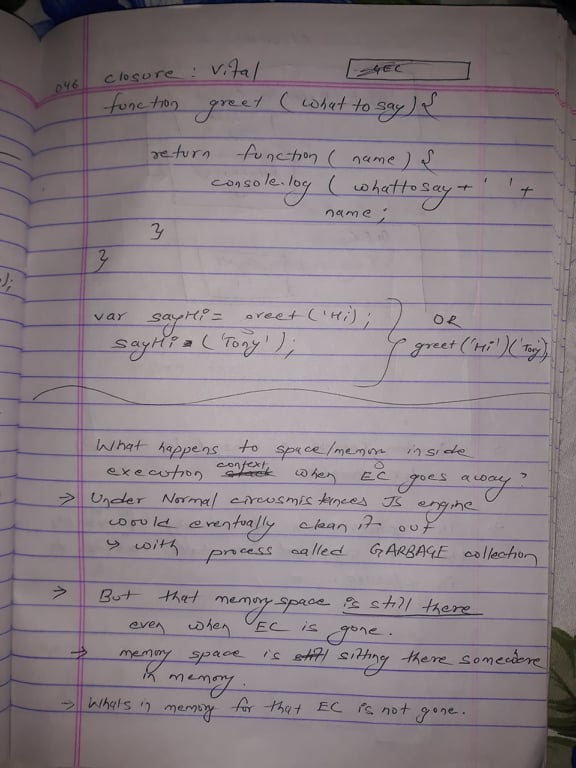 046 closure : Vital
GEC
function greet ( what to say ) {
return function ( name ) {
console.log ( whattosay + ' ' +
name ;
}
}
var sayHi = greet ('Hi) ;
OR
sayHi ('Tony') ;
greet ('Hi') ('Tony)
What happens to space/memory inside
execution context stack when EC goes away?
→ Under Normal circusmistances JS engine
would eventually clean it out
↳ with process called GARBAGE collection
→ But that memory space is still there
even when EC is gone.
→ memory space is still sitting there somewhere
in memory.
→ Whats in memory for that EC is not gone.